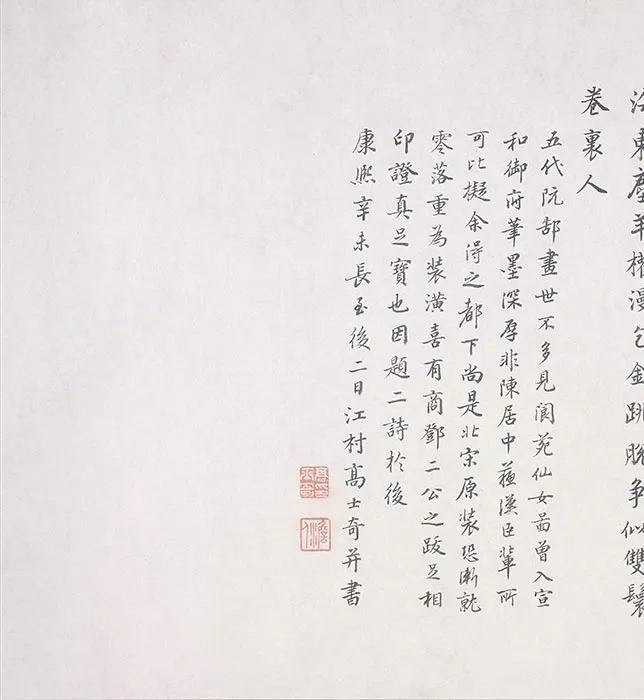 東塵羊權漫乞金跳脫爭似雙鬟
卷裏人
五代阮郜畫世不多見閬苑仙女啚曾入宣
和御府筆墨深厚非陳居中蘇漢臣輩所
可比擬余得之都下尚是北宋原裝恐漸就
零落重為裝潢喜有商鄧二公之跋足相
印證真足寶也因題二詩於後
康熙辛未長至後二日江村高士奇并書